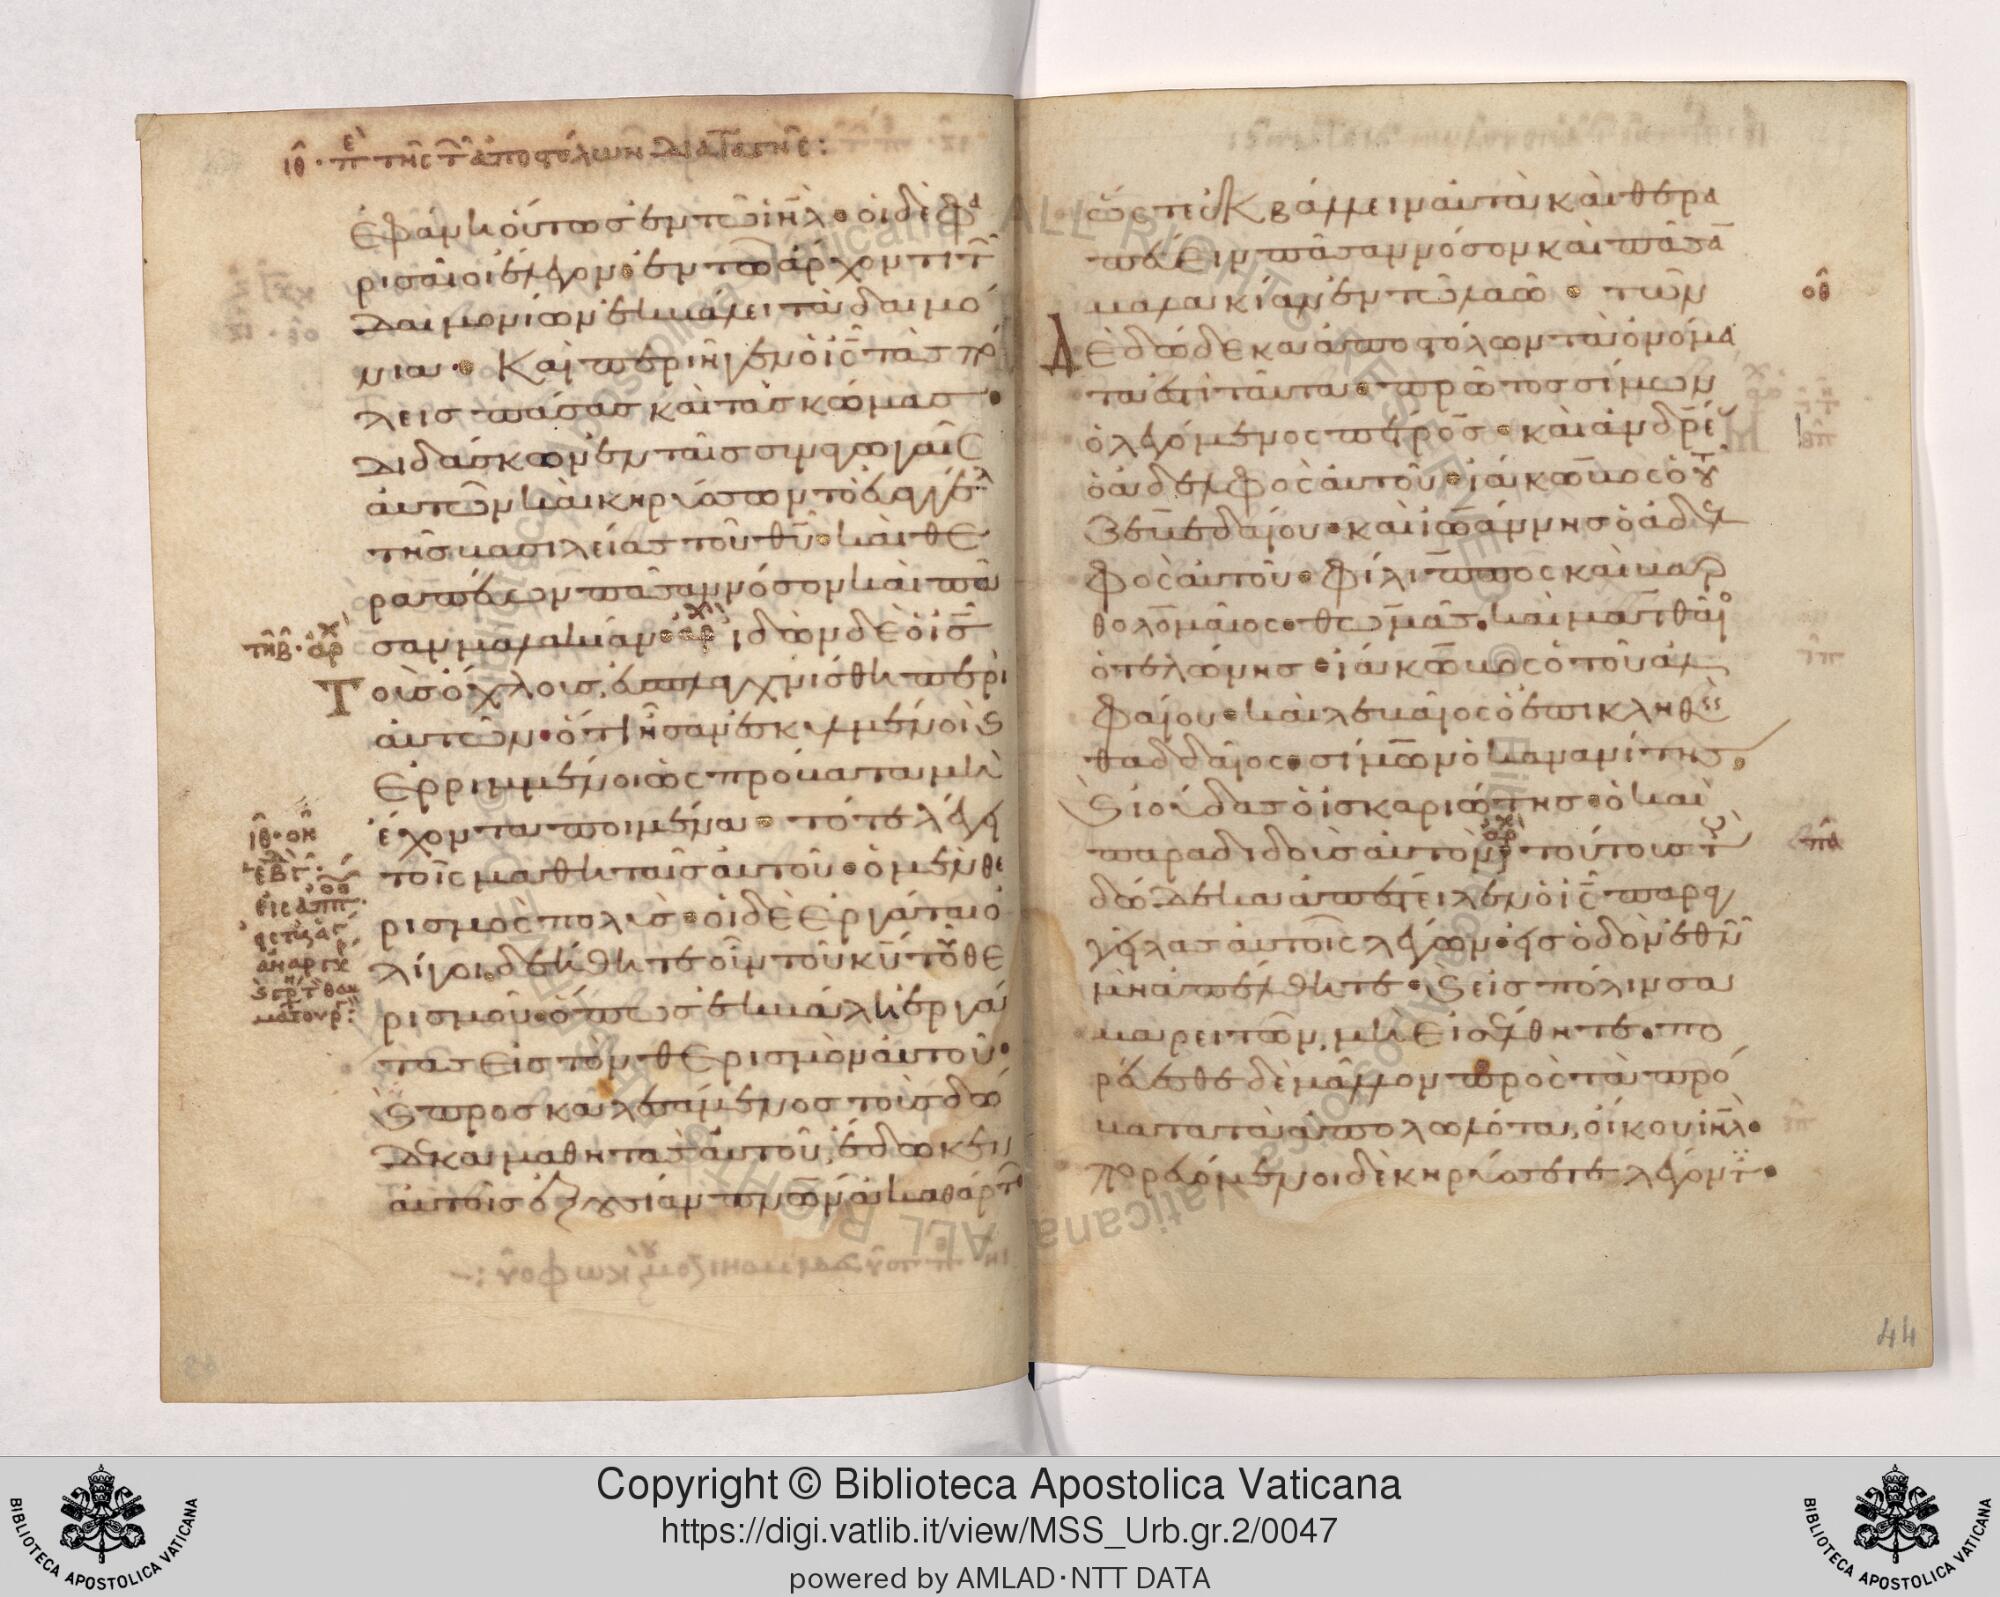 ιθ · πε της τ αποστόλων διαταγῆς:
ἐφάνη οὕτωσ ἐν τῶ ἰηλ · οἱ δὲ φα
ρισαῖοι ἔλεγον · ἐν τῶ ἄρχοντι τ
δαιμονίων ἐκβάλλει τὰ δαιμό
νια · Καὶ περιῆγεν ὁ ις τὰς πό
λεισ πάσασ καὶ τὰσ κώμασ ·
διδάσκων ἐν ταῖσ συναγωγαῖς
αὐτῶν καὶ κηρύσσων τὸ εὐαγγέλ
τῆσ βασιλείασ τοῦ θυ · καὶ θε
ραπεύων πᾶσαν νόσον καὶ πᾶ
σαν μαλακίαν · ἰδὼν δὲ ὁ ις
Τοὺσ ὄχλουσ, ἐσπλαγχνίσθη περὶ
αὐτῶν · ὅτι ἦσαν ἐσκυλμένοι καὶ
ἐρριμμένοι ὡς πρόβατα μὴ
ἔχοντα ποιμένα · τότε λέγει
τοῖς μαθηταῖσ αὐτοῦ · ὁ μὲν θε
ρισμὸς πολύσ · οἱ δὲ ἐργάται ὀ
λίγοι · δεήθητε οὖν τοῦ κυ τοῦ θε
ρισμοῦ · ὅπωσ ἐκβάλη ἐργά
τασ εἰσ τὸν θερισμὸν αὐτοῦ ·
καὶ προσκαλεσάμενοσ τοὺσ δώ
δεκα μαθητὰσ αὐτοῦ, ἔδωκεν
αὐτοῖσ ἐξουσίαν πνων ἀκαθάρτ
ὥστε ἐκβάλλειν αὐτὰ καὶ θερα
πεύειν πᾶσαν νόσον καὶ πᾶσα
μαλακίαν ἐν τῶ λαῶ · τῶν
οθ
Δὲ δώδεκα ἀποστόλων τὰ ὀνόμα
τά ἐστι ταῦτα · πρῶτοσ σίμων
ὁ λεγόμενος πέτροσ · καὶ ἀνδρέ
ὁ ἀδελφὸς αὐτοῦ · ἰάκωβος ὁ τοῦ
ζεβεδαίου · καὶ ἰωάννησ ὁ ἀδελ
φὸς αὐτοῦ · φίλιππος καὶ βαρ
θολομαῖος · θωμᾶσ · καὶ ματθαῖο
ὁ τελώνησ · ἰάκωβος ὁ τοῦ ἀλ
φαίου · καὶ λεβαῖος ὁ ἐπικληθεὶς
θαδδαῖος · σίμων ὁ κανανίτησ ·
καὶ ἰούδασ ὁ ἰσκαριώτησ · ὁ καὶ
παραδιδοὺσ αὐτὸν · τούτουσ τοὺ
πα
δώδεκα ἀπέστειλεν ὁ ις παραγ
γείλασ αὐτοῖς λέγων · εἰσ ὁδὸν ἐθνῶ
μὴ ἀπέλθητε · καὶ εἰσ πόλιν σα
μαρειτῶν, μὴ εἰσέλθητε · πο
ρεύεσθε δὲ μᾶλλον πρὸς τὰ πρό
βατα τὰ ἀπολωλότα, οἴκου ιηλ ·
πορευόμενοι δὲ κηρύσσετε λέγοντ ·
44
Copyright © Biblioteca Apostolica Vaticana
https://digi.vatlib.it/view/MSS_Urb.gr.2/0047
powered by AMLAD·NTT DATA
BIBLIOTECA APOSTOLICA VATICANA
BIBLIOTECA APOSTOLICA VATICANA